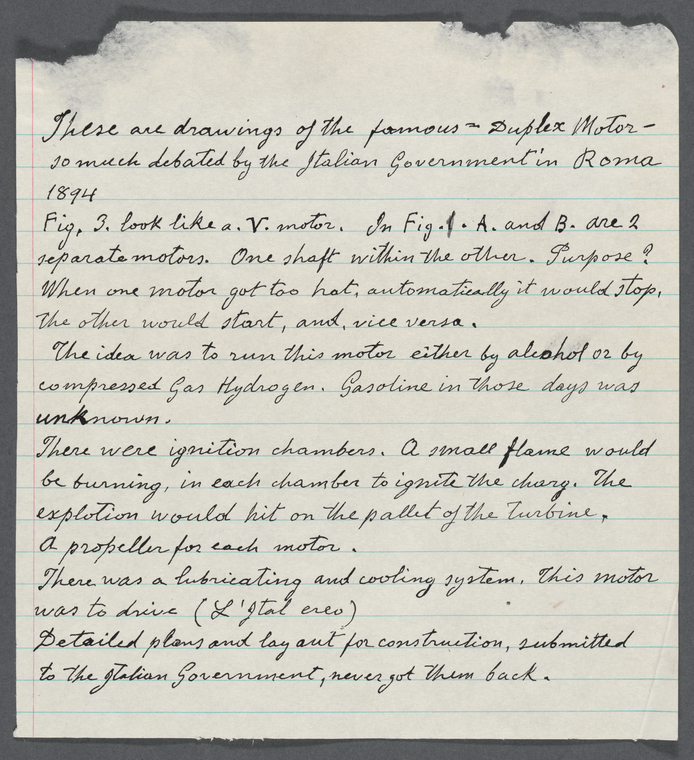 These are drawings of the famous = Duplex Motor -
so much debated by the Italian Government in Roma
1894
Fig. 3. look like a. V. motor. In Fig. 1. A. and B. are 2
separate motors. One shaft within the other. Purpose?
When one motor got too hot, automatically it would stop,
the other would start, and, vice versa.
The idea was to run this motor either by alcohol or by
compressed Gas Hydrogen. Gasoline in those days was
unknown.
There were ignition chambers. A small flame would
be burning, in each chamber to ignite the charg. The
explotion would hit on the pallet of the Turbine,
A propeller for each motor.
There was a lubricating and cooling system. This motor
was to drive (L'Ital ereo)
Detailed plans and lay out for construction, submitted
to the Italian Government, never got them back.